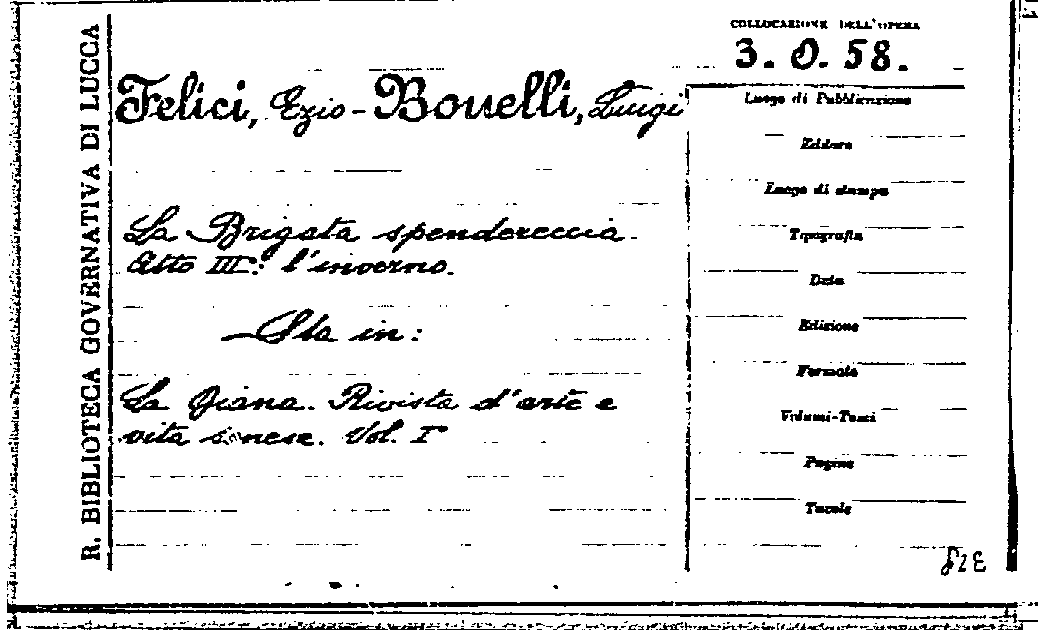 R. BIBLIOTECA GOVERNATIVA DI LUCCA
COLLOCAZIONE DELL'OPERA
3. O. 58.
Felici, Ezio - Bonelli, Luigi
La Brigata spendereccia.
Atto III: l'inverno.
Sta in:
La Diana. Rivista d'arte e
vita senese. Vol. I°
Luogo di Pubblicazione
Editore
Luogo di stampa
Tipografia
Data
Edizione
Formato
Volumi-Tomi
Pagine
Tavole